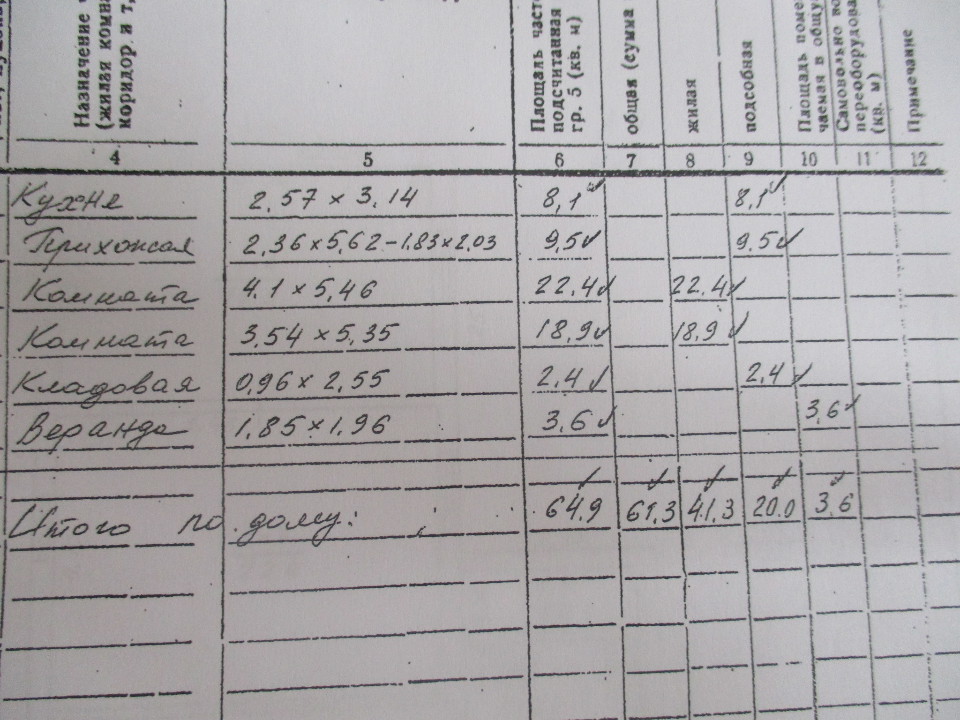 Назначение
(жилая комн
коридор, и т,
Площадь част
подсчитанная
гр. 5 (кв. м)
общая (сумма
жилая
подсобная
Площадь поме
чаемая в общу
Самовольно во
переоборудова
(кв. м)
Примечание
4 5 6 7 8 9 10 11 12
Кухне 2,57 × 3,14 8,1 8,1
Прихожая 2,36 × 5,62 - 1,83 × 2,03 9,5 9,5
Комната 4,1 × 5,46 22,4 22,4
Комната 3,54 × 5,35 18,9 18,9
Кладовая 0,96 × 2,55 2,4 2,4
Веранда 1,85 × 1,96 3,6 3,6
Итого по дому: 64,9 61,3 41,3 20,0 3,6